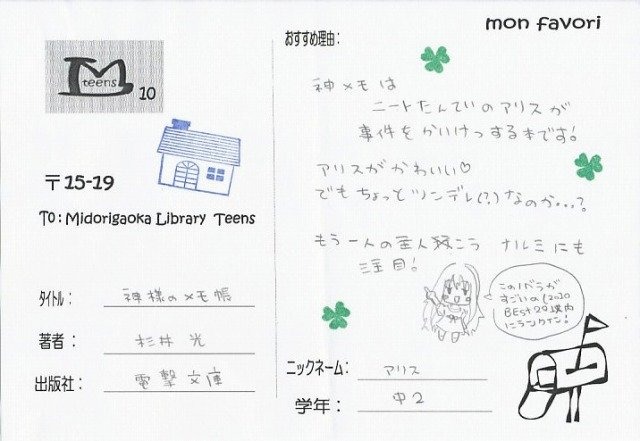 mon favori
M
teens
10
〒15-19
To: Midorigaoka Library Teens
タイトル: 神様のメモ帳
著者: 杉井 光
出版社: 電撃文庫
おすすめ理由:
神メモは
ニートたんていのアリスが
事件をかいけつする本です!
アリスがかわいい♡
でもちょっとツンデレ(?)なのか…?
もう一人の主人公 ナルミにも
注目!
このラノベが
すごいの(2010
BEST20以内
にランクイン!
ニックネーム: アリス
学年: 中2